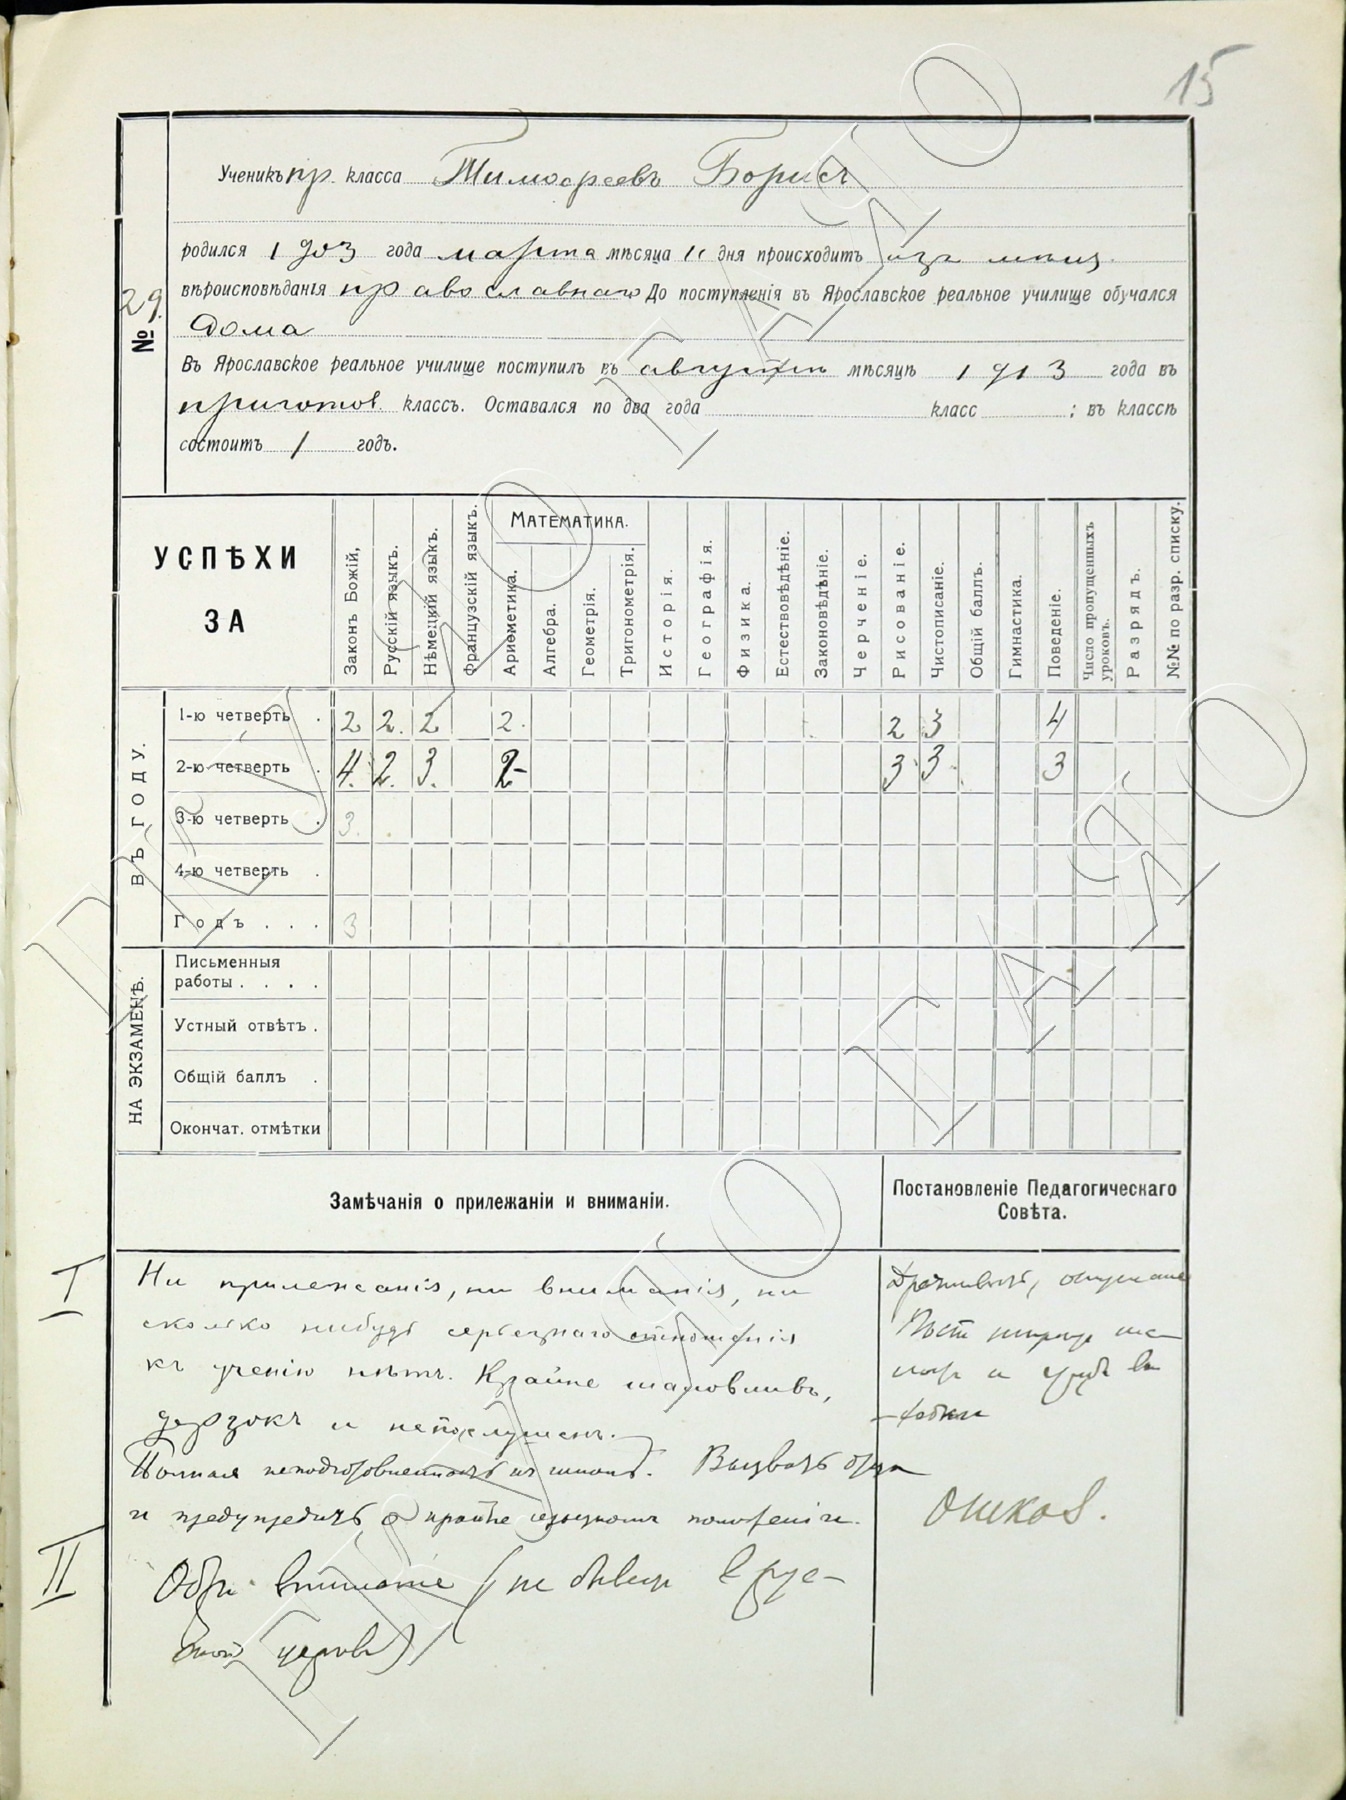 15
Ученикъ пр. класса Тимофеевъ Борисъ
родился 1903 года марта мѣсяца 11 дня происходитъ изъ мѣщ.
вѣроисповѣданія православнаго До поступленія въ Ярославское реальное училище обучался
дома
№ 29.
Въ Ярославское реальное училище поступилъ въ августѣ мѣсяцѣ 1913 года въ
приготов. классъ. Оставался по два года класс ; въ классѣ
состоитъ 1 годъ.
УСПѢХИ
ЗА
Законъ Божій,
Русскій языкъ.
Нѣмецкій языкъ.
Французскій языкъ.
МАТЕМАТИКА.
Ариѳметика.
Алгебра.
Геометрія.
Тригонометрія.
Исторія.
Географія.
Физика.
Естествовѣдѣніе.
Законовѣдѣніе.
Черченіе.
Рисованіе.
Чистописаніе.
Общій баллъ.
Гимнастика.
Поведеніе.
Число пропущенныхъ уроковъ.
Разрядъ.
№№ по разр. списку.
ВЪ ГОДУ.
1-ю четверть . 2 2. 2 2. 2 3 4
2-ю четверть . 4. 2. 3. 2- 3 3 3
3-ю четверть . 3.
4-ю четверть .
Годъ . . . 3
НА ЭКЗАМЕНѢ.
Письменныя
работы . . . .
Устный отвѣтъ .
Общій баллъ .
Окончат. отмѣтки
Замѣчанія о прилежаніи и вниманіи.
Постановленіе Педагогическаго
Совѣта.
I
Ни прилежанія, ни вниманія, ни
сколько нибудь серьезнаго отношенія
къ ученію нѣтъ. Крайне шаловливъ,
дерзокъ и непослушенъ.
Полная неподготовленность къ школѣ. Вызвать отца
и предупредить о крайне серьезномъ положеніи.
II
Обр. вниманіе (не бываетъ въ
церкви)
ГАЯО
ГАЯО
ГАЯО
ГАЯО